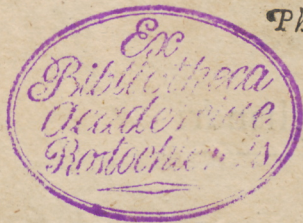 Ph
Ex
Bibliotheca
Academiae
Rostochiensis